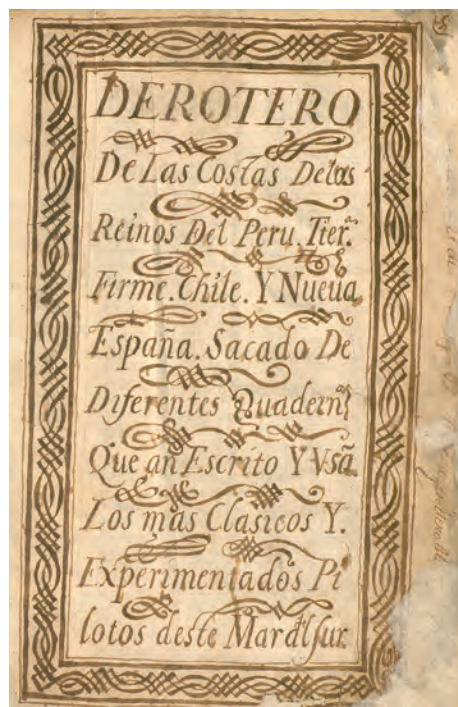 DEROTERO
De Las Costas Delos
Reinos Del Peru. Tierª.
Firme. Chile. Y Nueua
España. Sacado De
Diferentes Quadernˢ
Que an Escrito Y Vsã
Los mas Clasicos Y.
Experimentados Pi
lotos deste Mar dl sur.